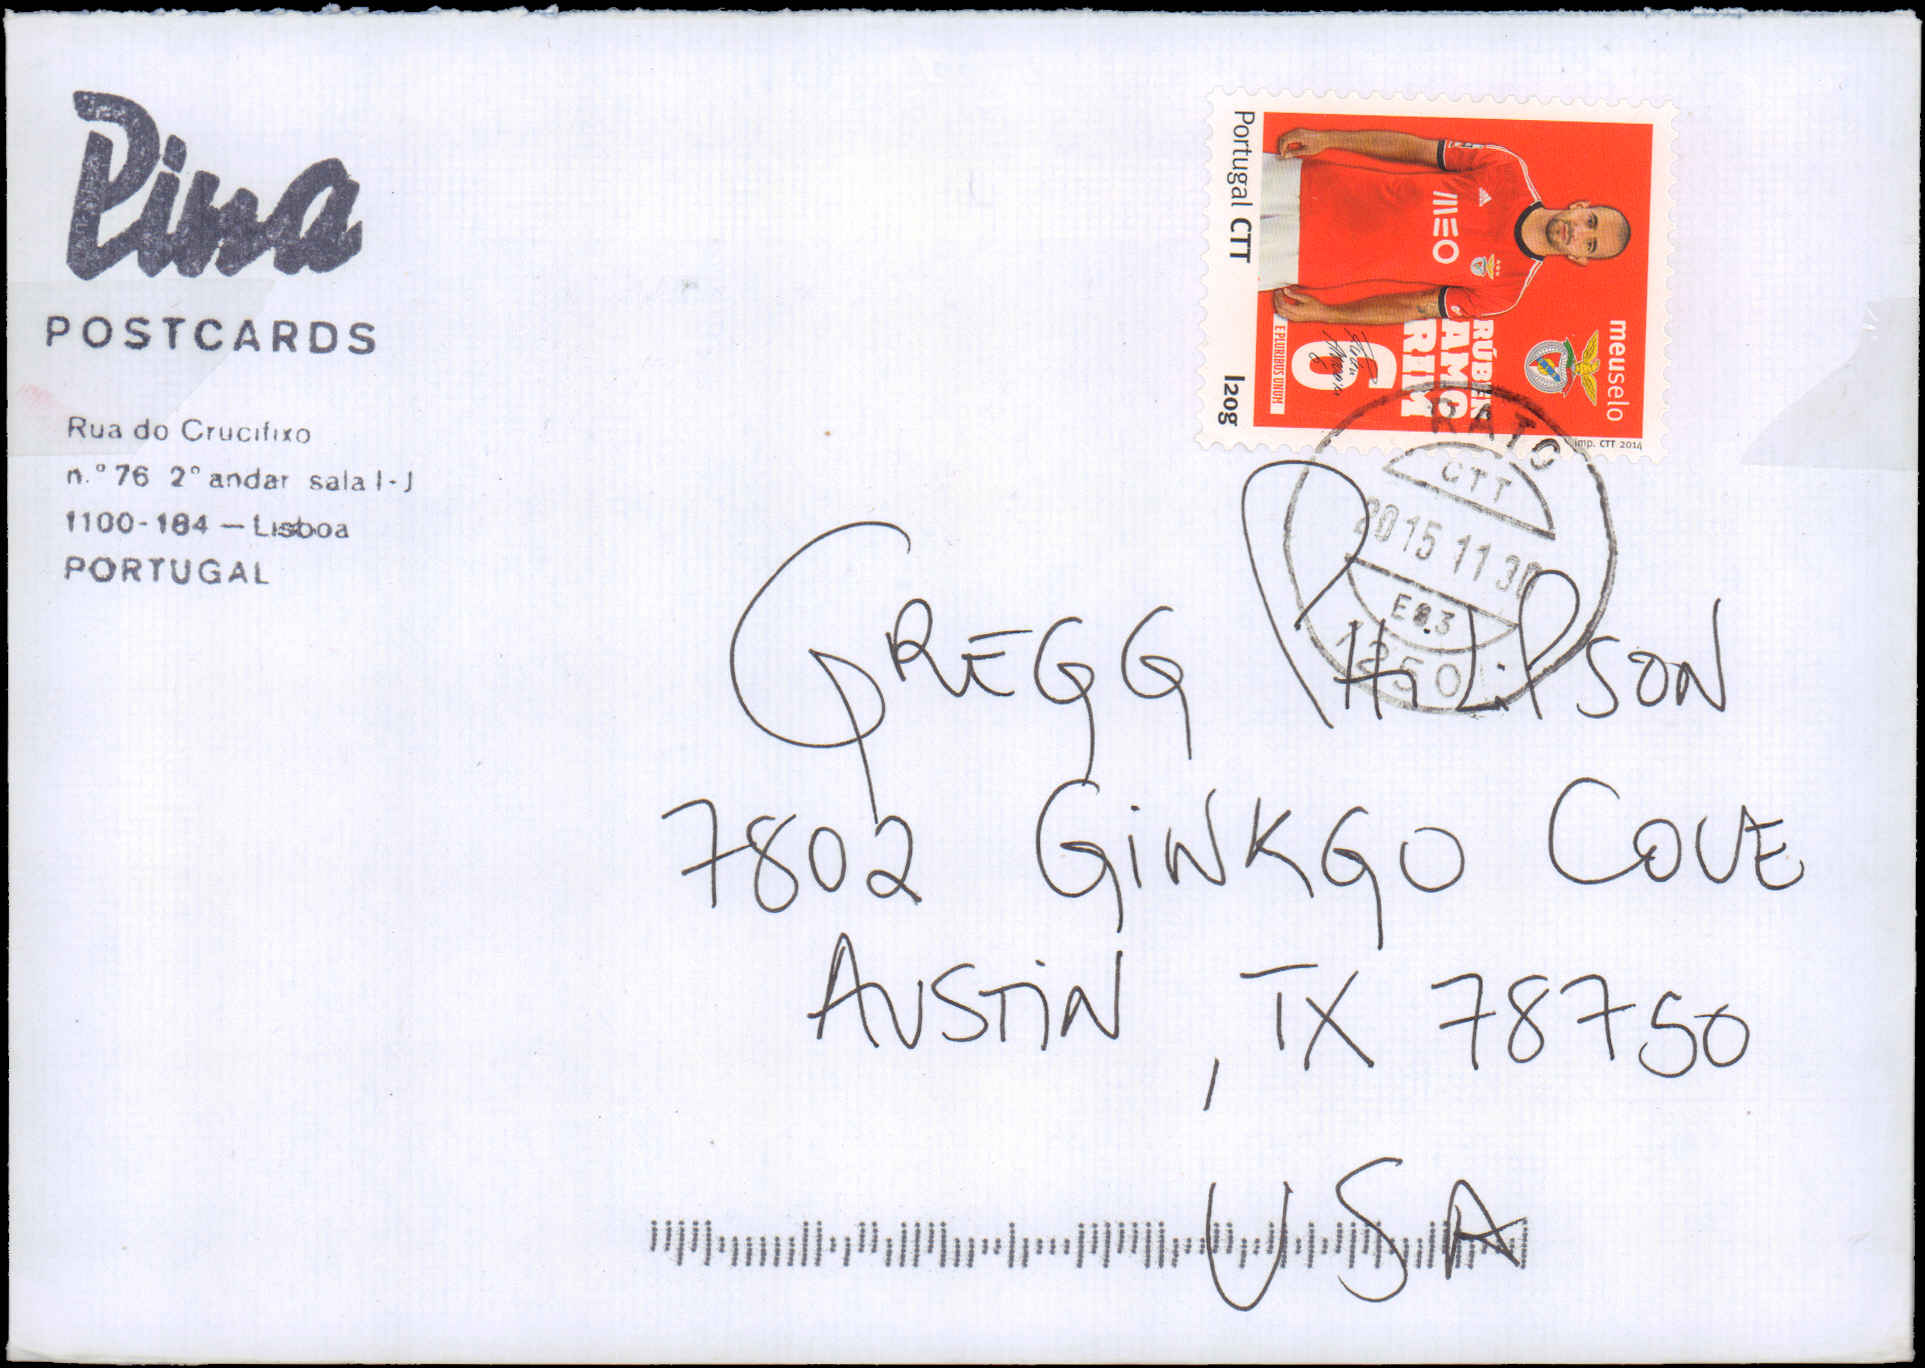 Pina
POSTCARDS
Rua do Crucifixo
n.º 76 2º andar sala I-J
1100-184 — Lisboa
PORTUGAL
Portugal CTT
I20g
meuselo
RÚBEN
AMO
RIM
6
E PLURIBUS UNUM
MEO
imp. CTT 2014
RATO
CTT
2015 11.30
1250
GREGG PHILIPSON
7802 GINKGO COVE
AUSTIN, TX 78750
USA